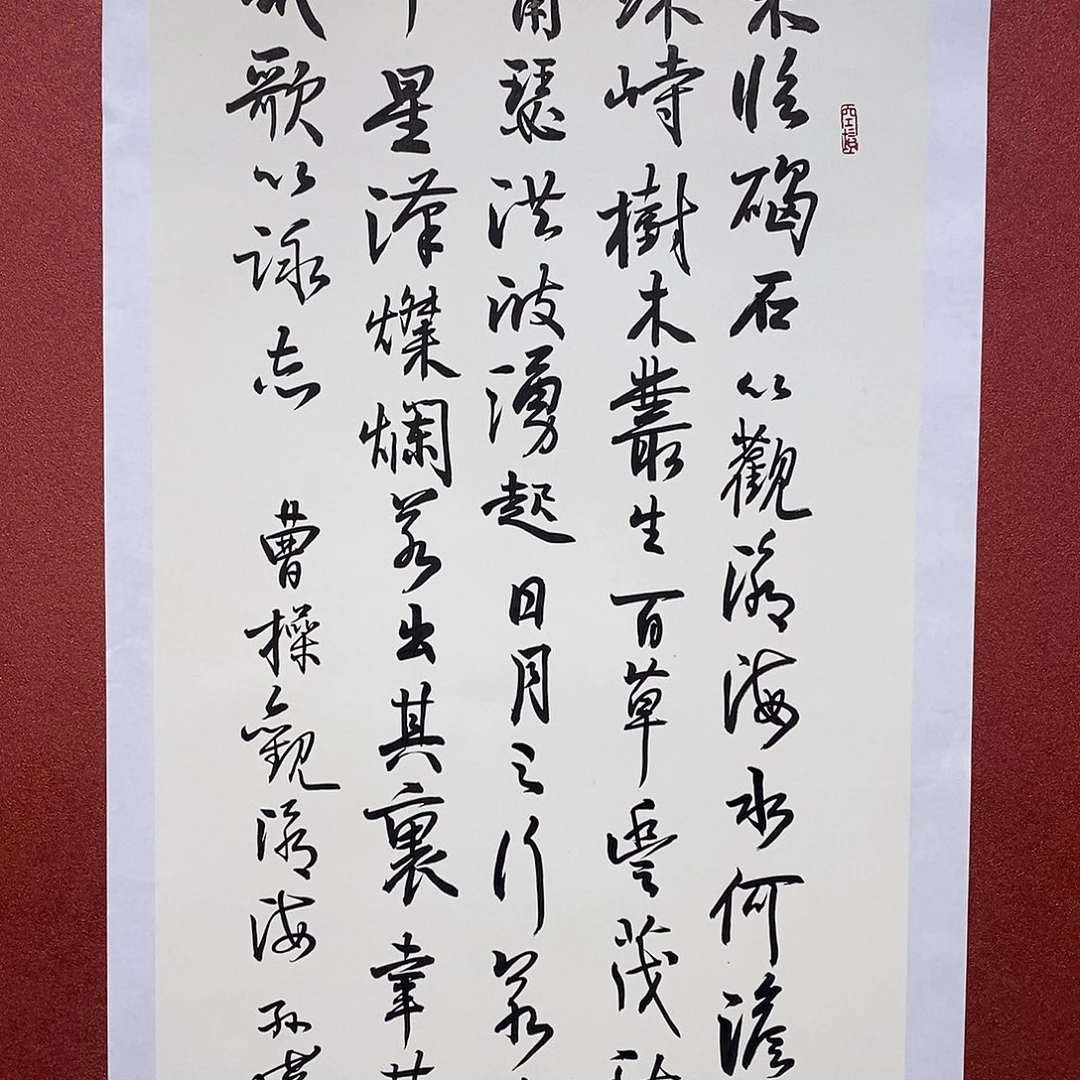 臨碣石以觀滄海水何澹
峙樹木叢生百草豐茂
瑟洪波湧起日月之行若
星漢燦爛若出其裏幸
歌以詠志 曹操觀滄海 孫